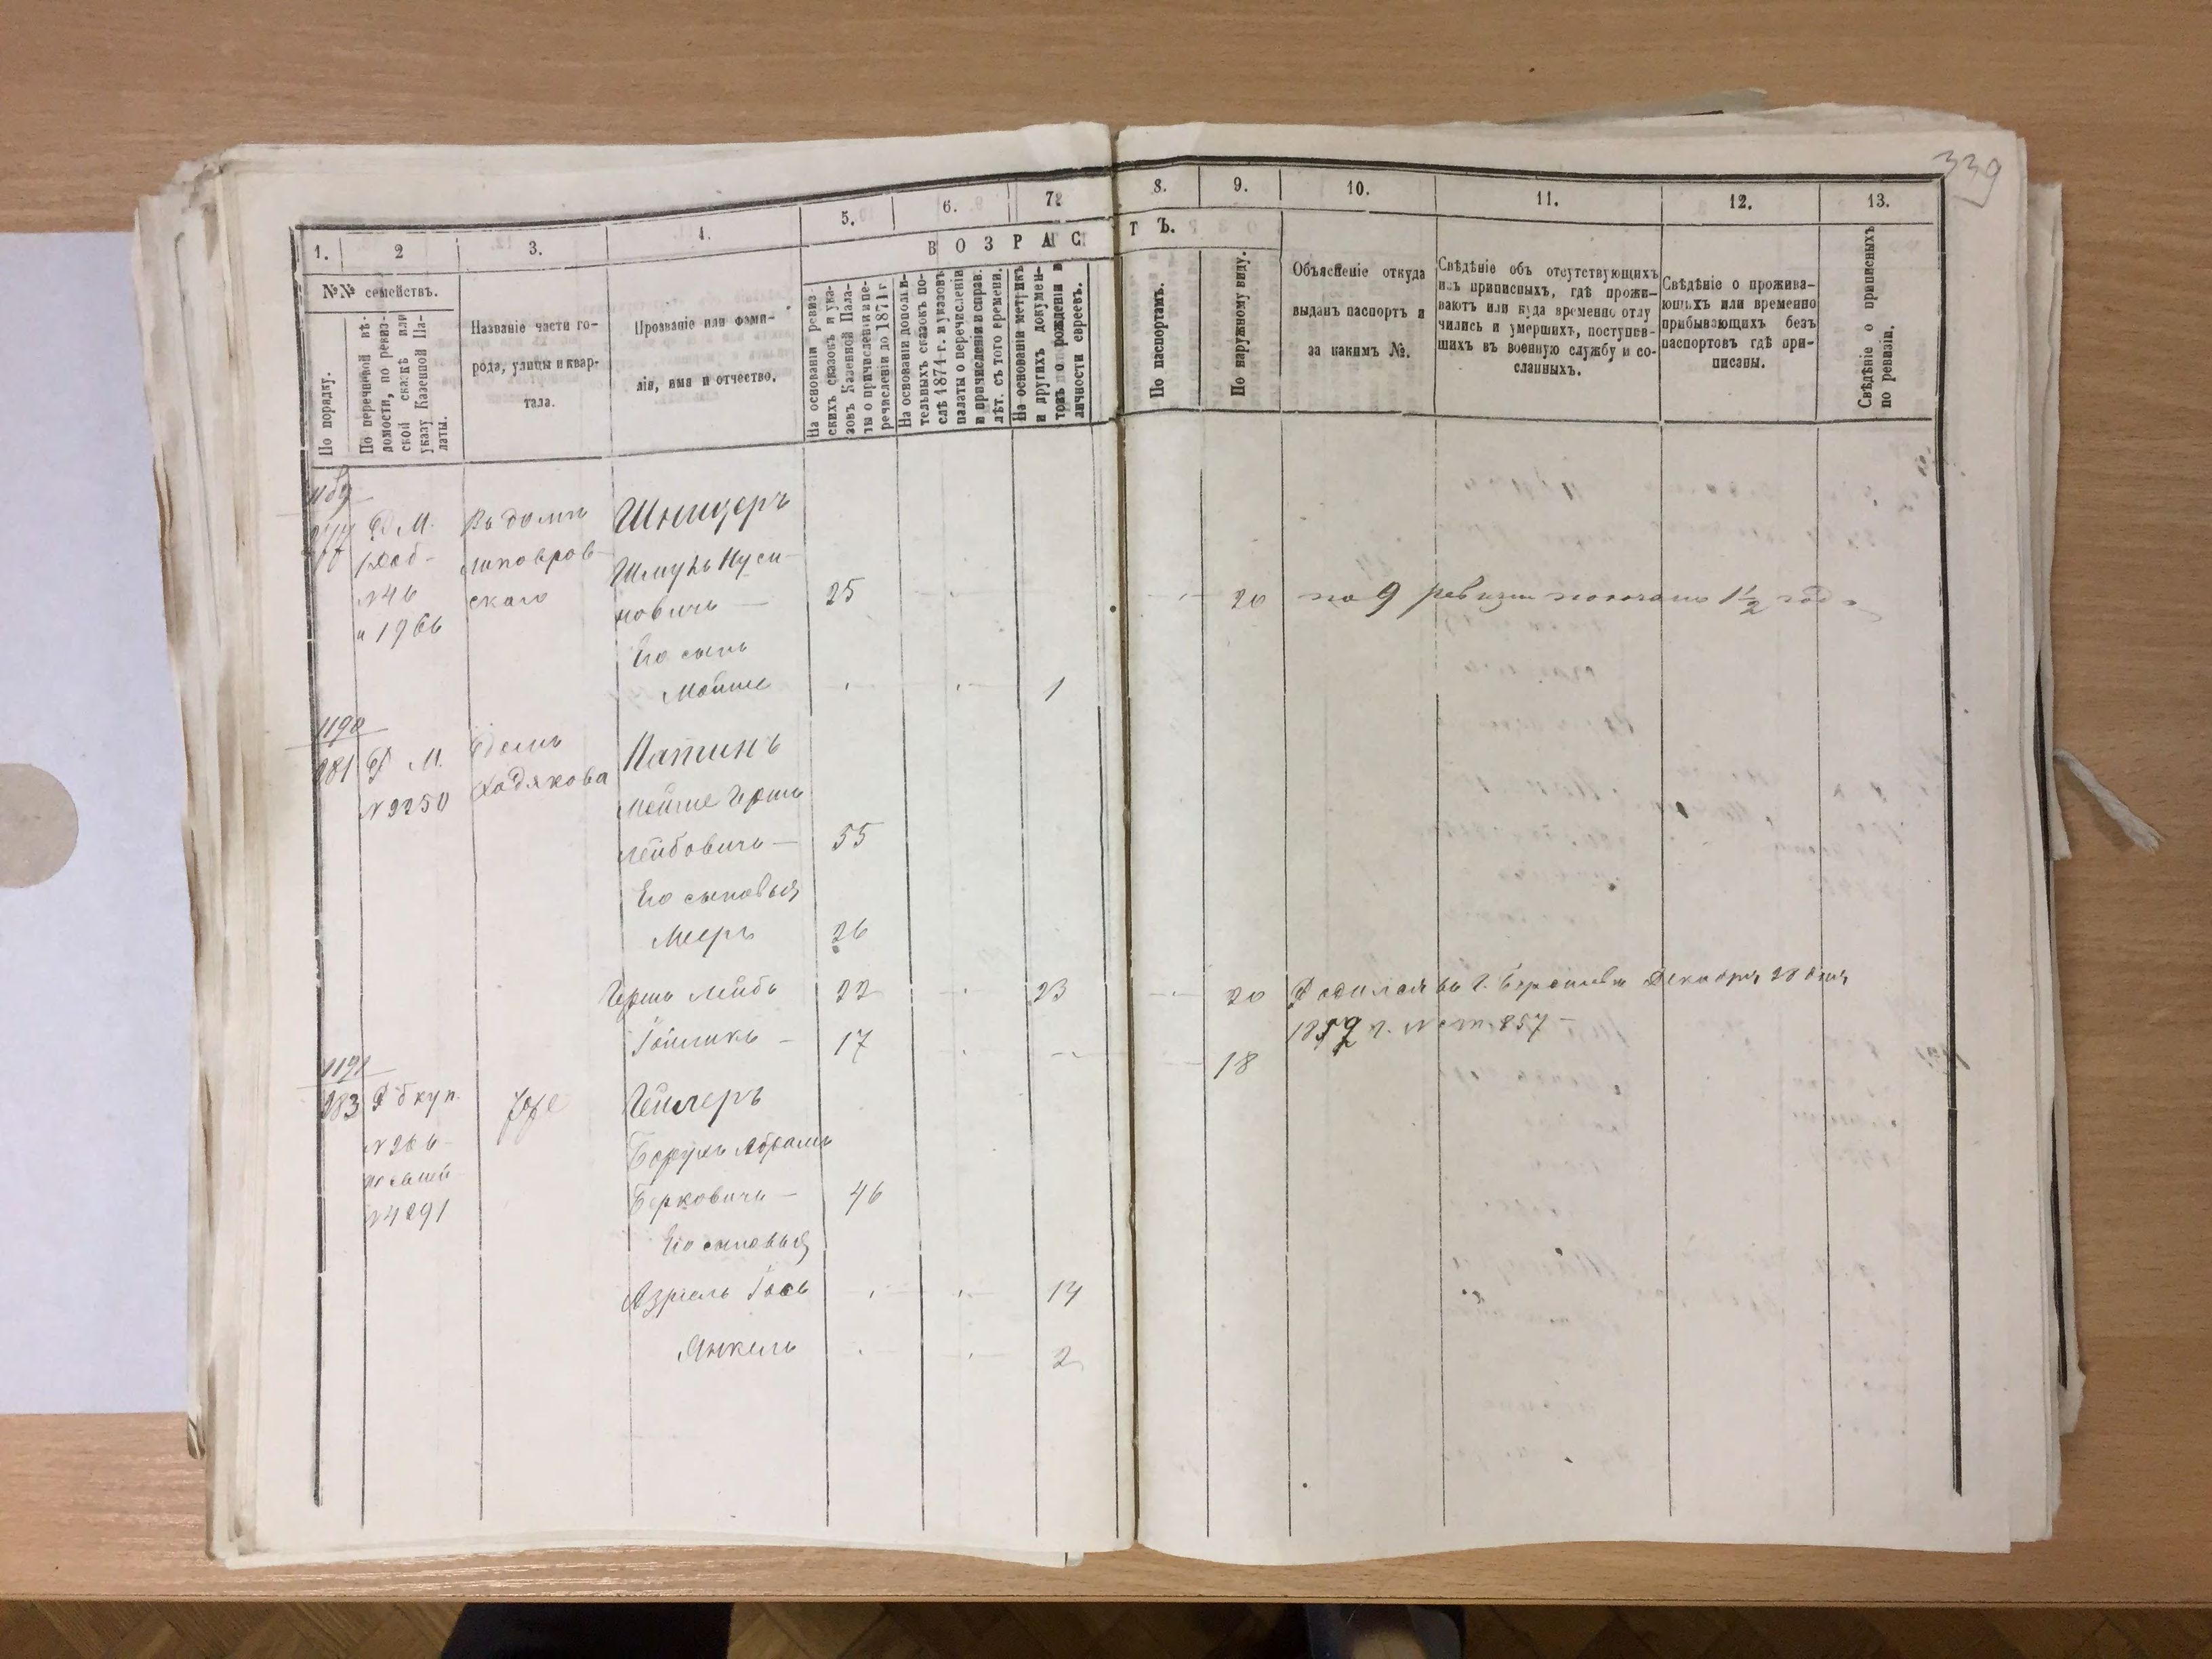 339
1. 2 3. 4. 5. 6. 7. 8. 9. 10. 11. 12. 13.
№№ семействъ.
По порядку.
По перечневой вѣ-
домости, по ревиз-
ской сказкѣ или
указу Казенной Па-
латы.
Названіе части го-
рода, улицы и квар-
тала.
Прозваніе или фами-
лія, имя и отчество.
ВОЗРАСТЪ.
На основаніи ревиз
скихъ сказокъ и ука-
зовъ Казенной Пала-
ты о причисленіи и пе-
речисленіи до 1871 г
На основаніи дополни-
тельныхъ сказокъ по-
слѣ 1874 г. и указовъ
палаты о перечисленіи
и причисленіи и справ.
лѣт. съ того времени.
На основаніи метрикъ
и другихъ докумен-
товъ о рожденіи и
личности евреевъ.
По паспортамъ.
По наружному виду.
Объясненіе откуда
выданъ паспортъ и
за какимъ №.
Свѣдѣніе объ отсутствующихъ
изъ приписныхъ, гдѣ прожи-
ваютъ или куда временно отлу
чились и умершихъ, поступив-
шихъ въ военную службу и со-
сланныхъ.
Свѣдѣніе о прожива-
ющихъ или временно
прибывающихъ безъ
паспортовъ гдѣ при-
писаны.
Свѣдѣніе о приписныхъ
по ревизіи.
М. Въ домѣ Шницеръ
Шмуль Нуси-
№46 скаго новичъ — 25 20 по 9 ревизіи показано 1½ года
и 1966
Его сынъ
Мойше 1
1190
981 М. Ходякова Патинъ
№9250 Мойше Гершъ
Лейбовичъ — 55
Его сыновья
Мееръ 26
Гершъ Лейбъ 22 23 20 Родился въ г. Декабря 28 дня
1859 г. № ст. 857 —
17 18
1191
983 куп. Гейлеръ
№266 Борухъ Абрамъ
№4291 Берковичъ — 46
Его сыновья
Азріель Іось 14
Янкель 2